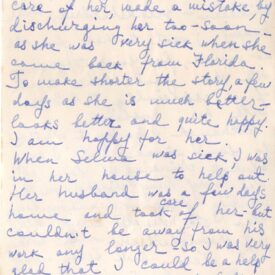 care of her, made a mistake, by
discharging her too-soon -
as she was very sick when she
come back from Florida.
To make shorter the story, a few
days as she is much better -
looks better and quite happy.
I am happy for her.
When Selma was sick, I was
in her house to help out.
Her husband was a few days
home and took care of her - but
couldn't be away from his
work any longer so I was very
glad that I could be a help